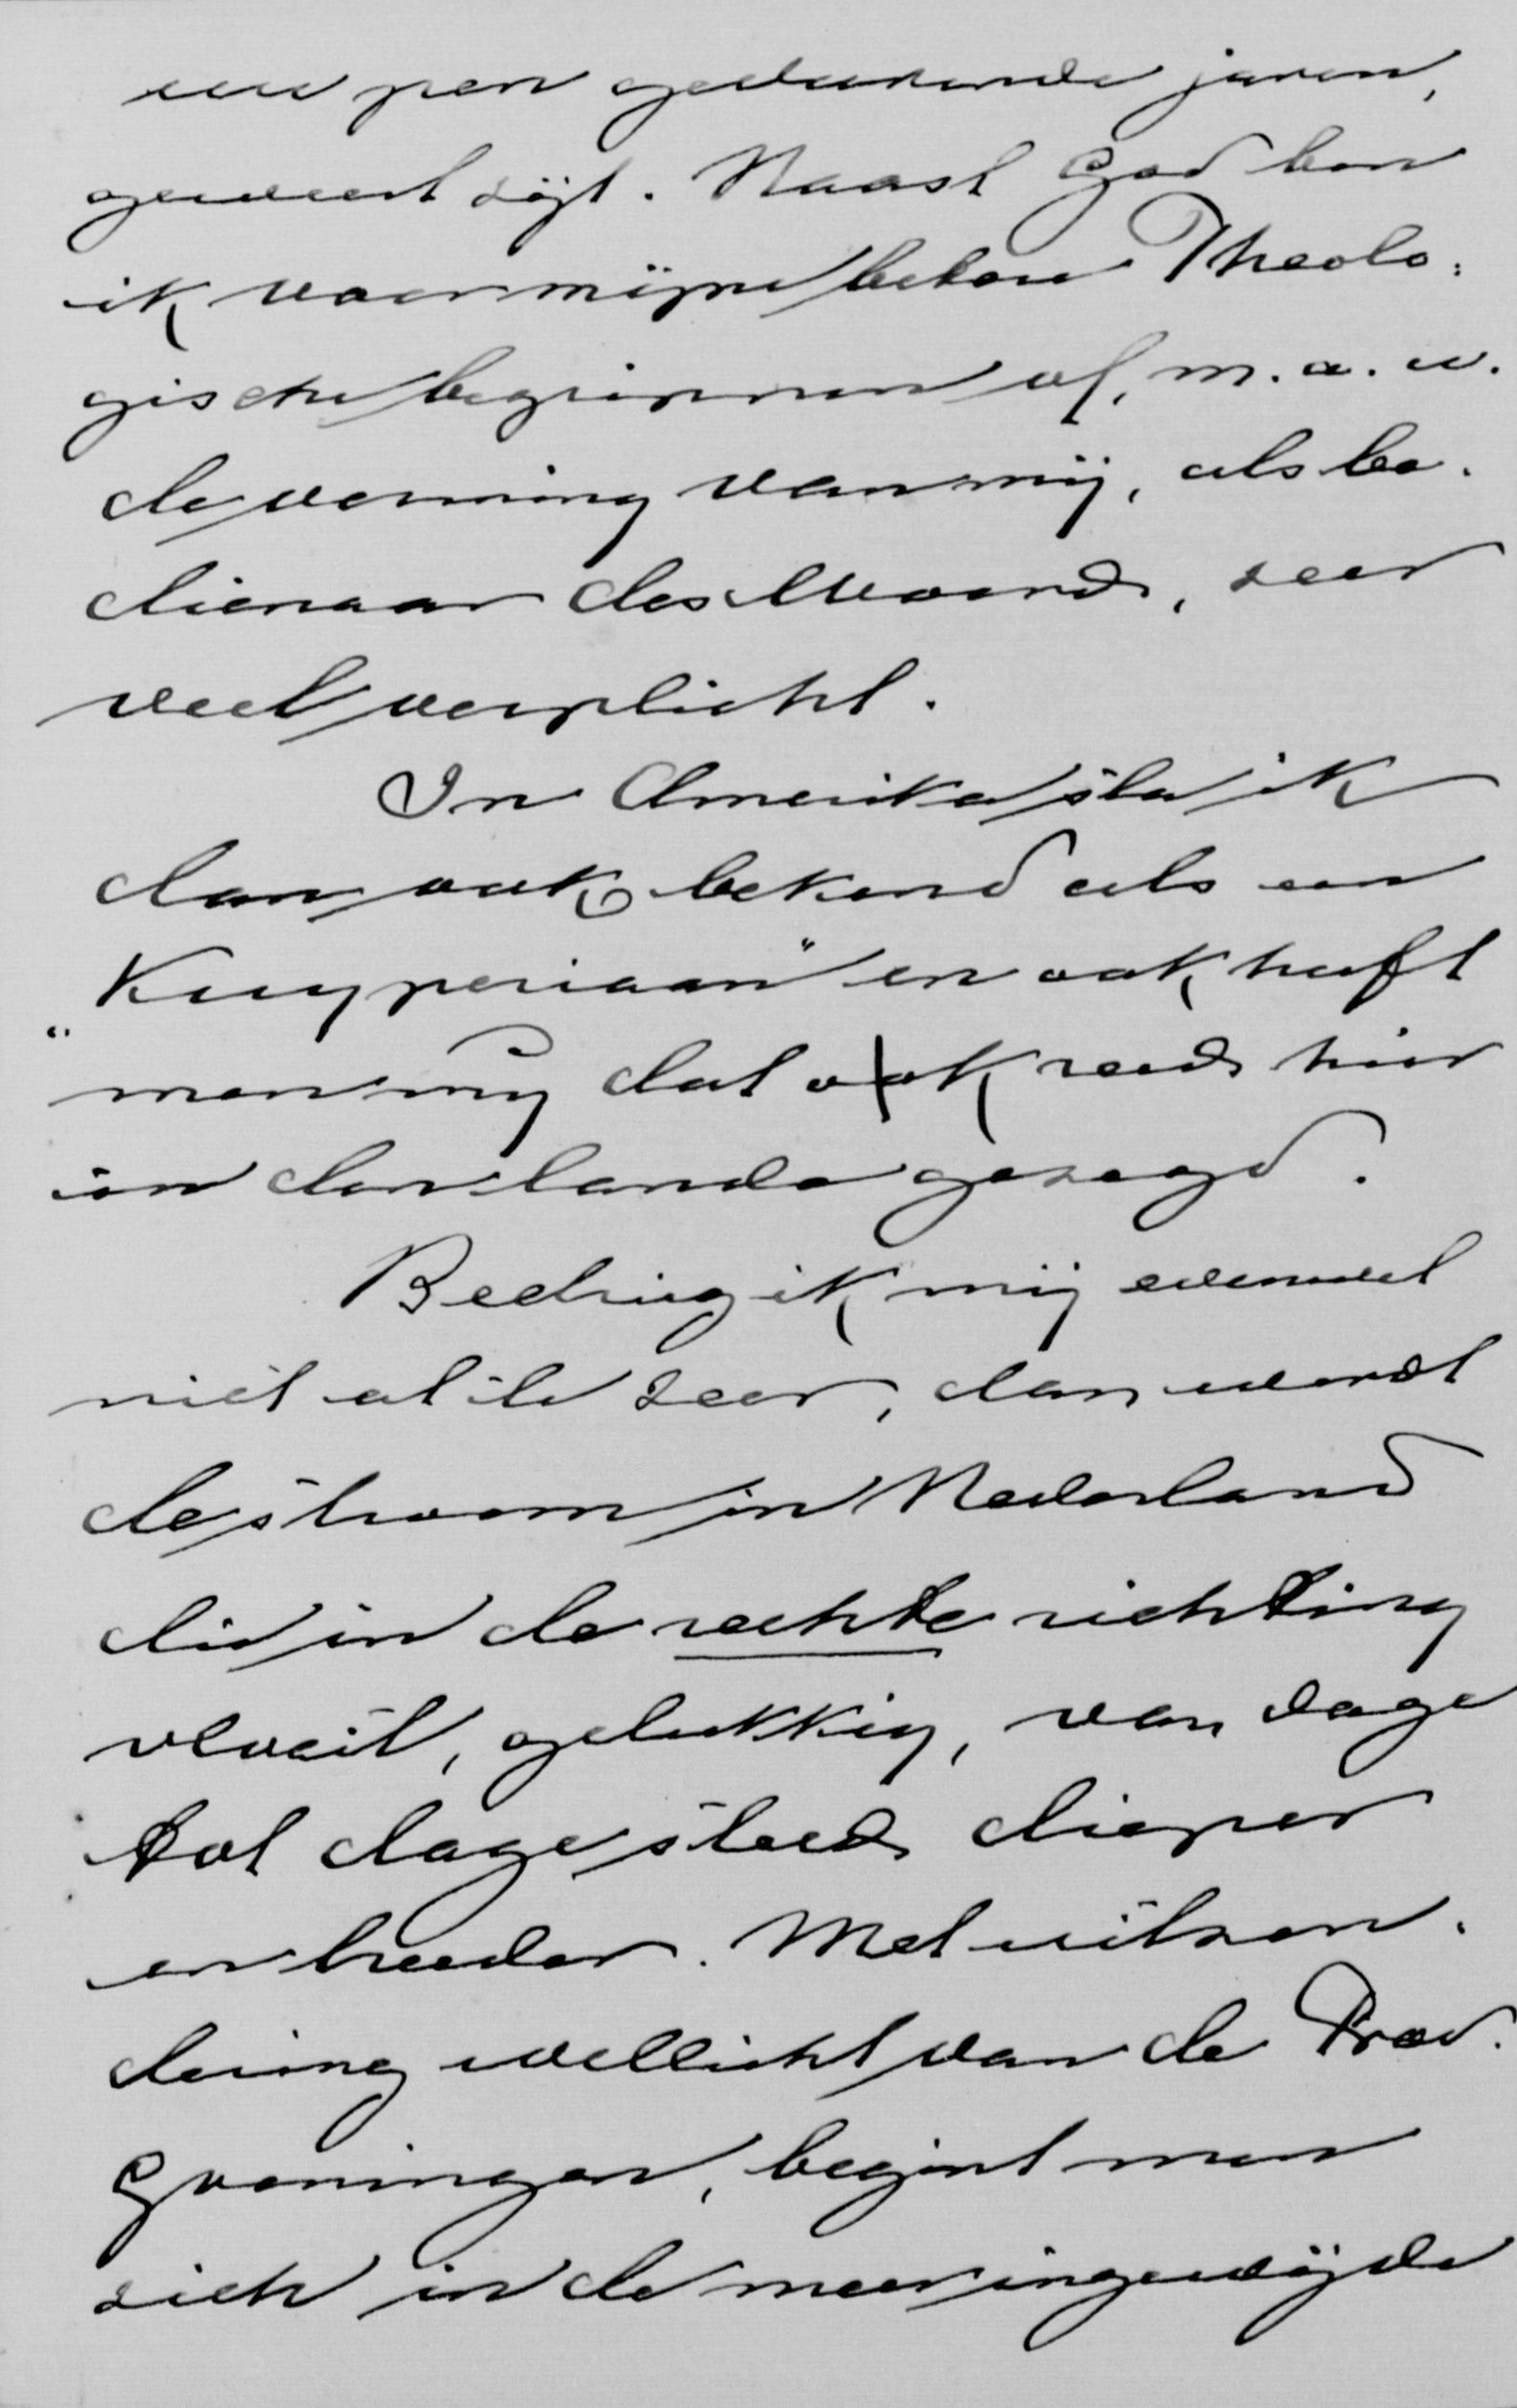 uw pen gedurende jaren,
geweest zijt. Naast God ben
ik voor mijne betere Theolo:
gische beginnen of, m. a. w.
de vorming van mij, als be.
dienaar des Woords, zeer
veel verplicht.
In Amerika sta ik
dan ook bekend als een
"Kuyperiaan" en ook heeft
men mij dat ook reeds hier
in den lande gezegd.
Bedrieg ik mij evenwel
niet al te zeer, dan wordt
de stroom in Nederland
die in de rechte richting
vloeit, gelukkig, van dage
tot dage steeds dieper
en breeder. Met uitzon.
dering wellicht van de Prov.
Groningen, begint men
zich in de meer ingewijde